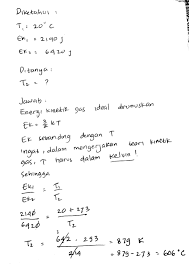 Diketahui :
T₁ = 20°C
Ek₁ = 2140 J
Ek₂ = 6420 J
Ditanya :
T₂ = ?
Jawab :
Energi kinetik gas ideal dirumuskan
Ek = 3/2 kT
Ek sebanding dengan T
Ingat, dalam mengerjakan teori kinetik
gas, T harus dalam kelvin !
Sehingga
Ek₁/Ek₂ = T₁/T₂
2140/6420 = 20 + 273/T₂
T₂ = 642 . 293/214 = 879 K
= 879 - 273 = 606°C